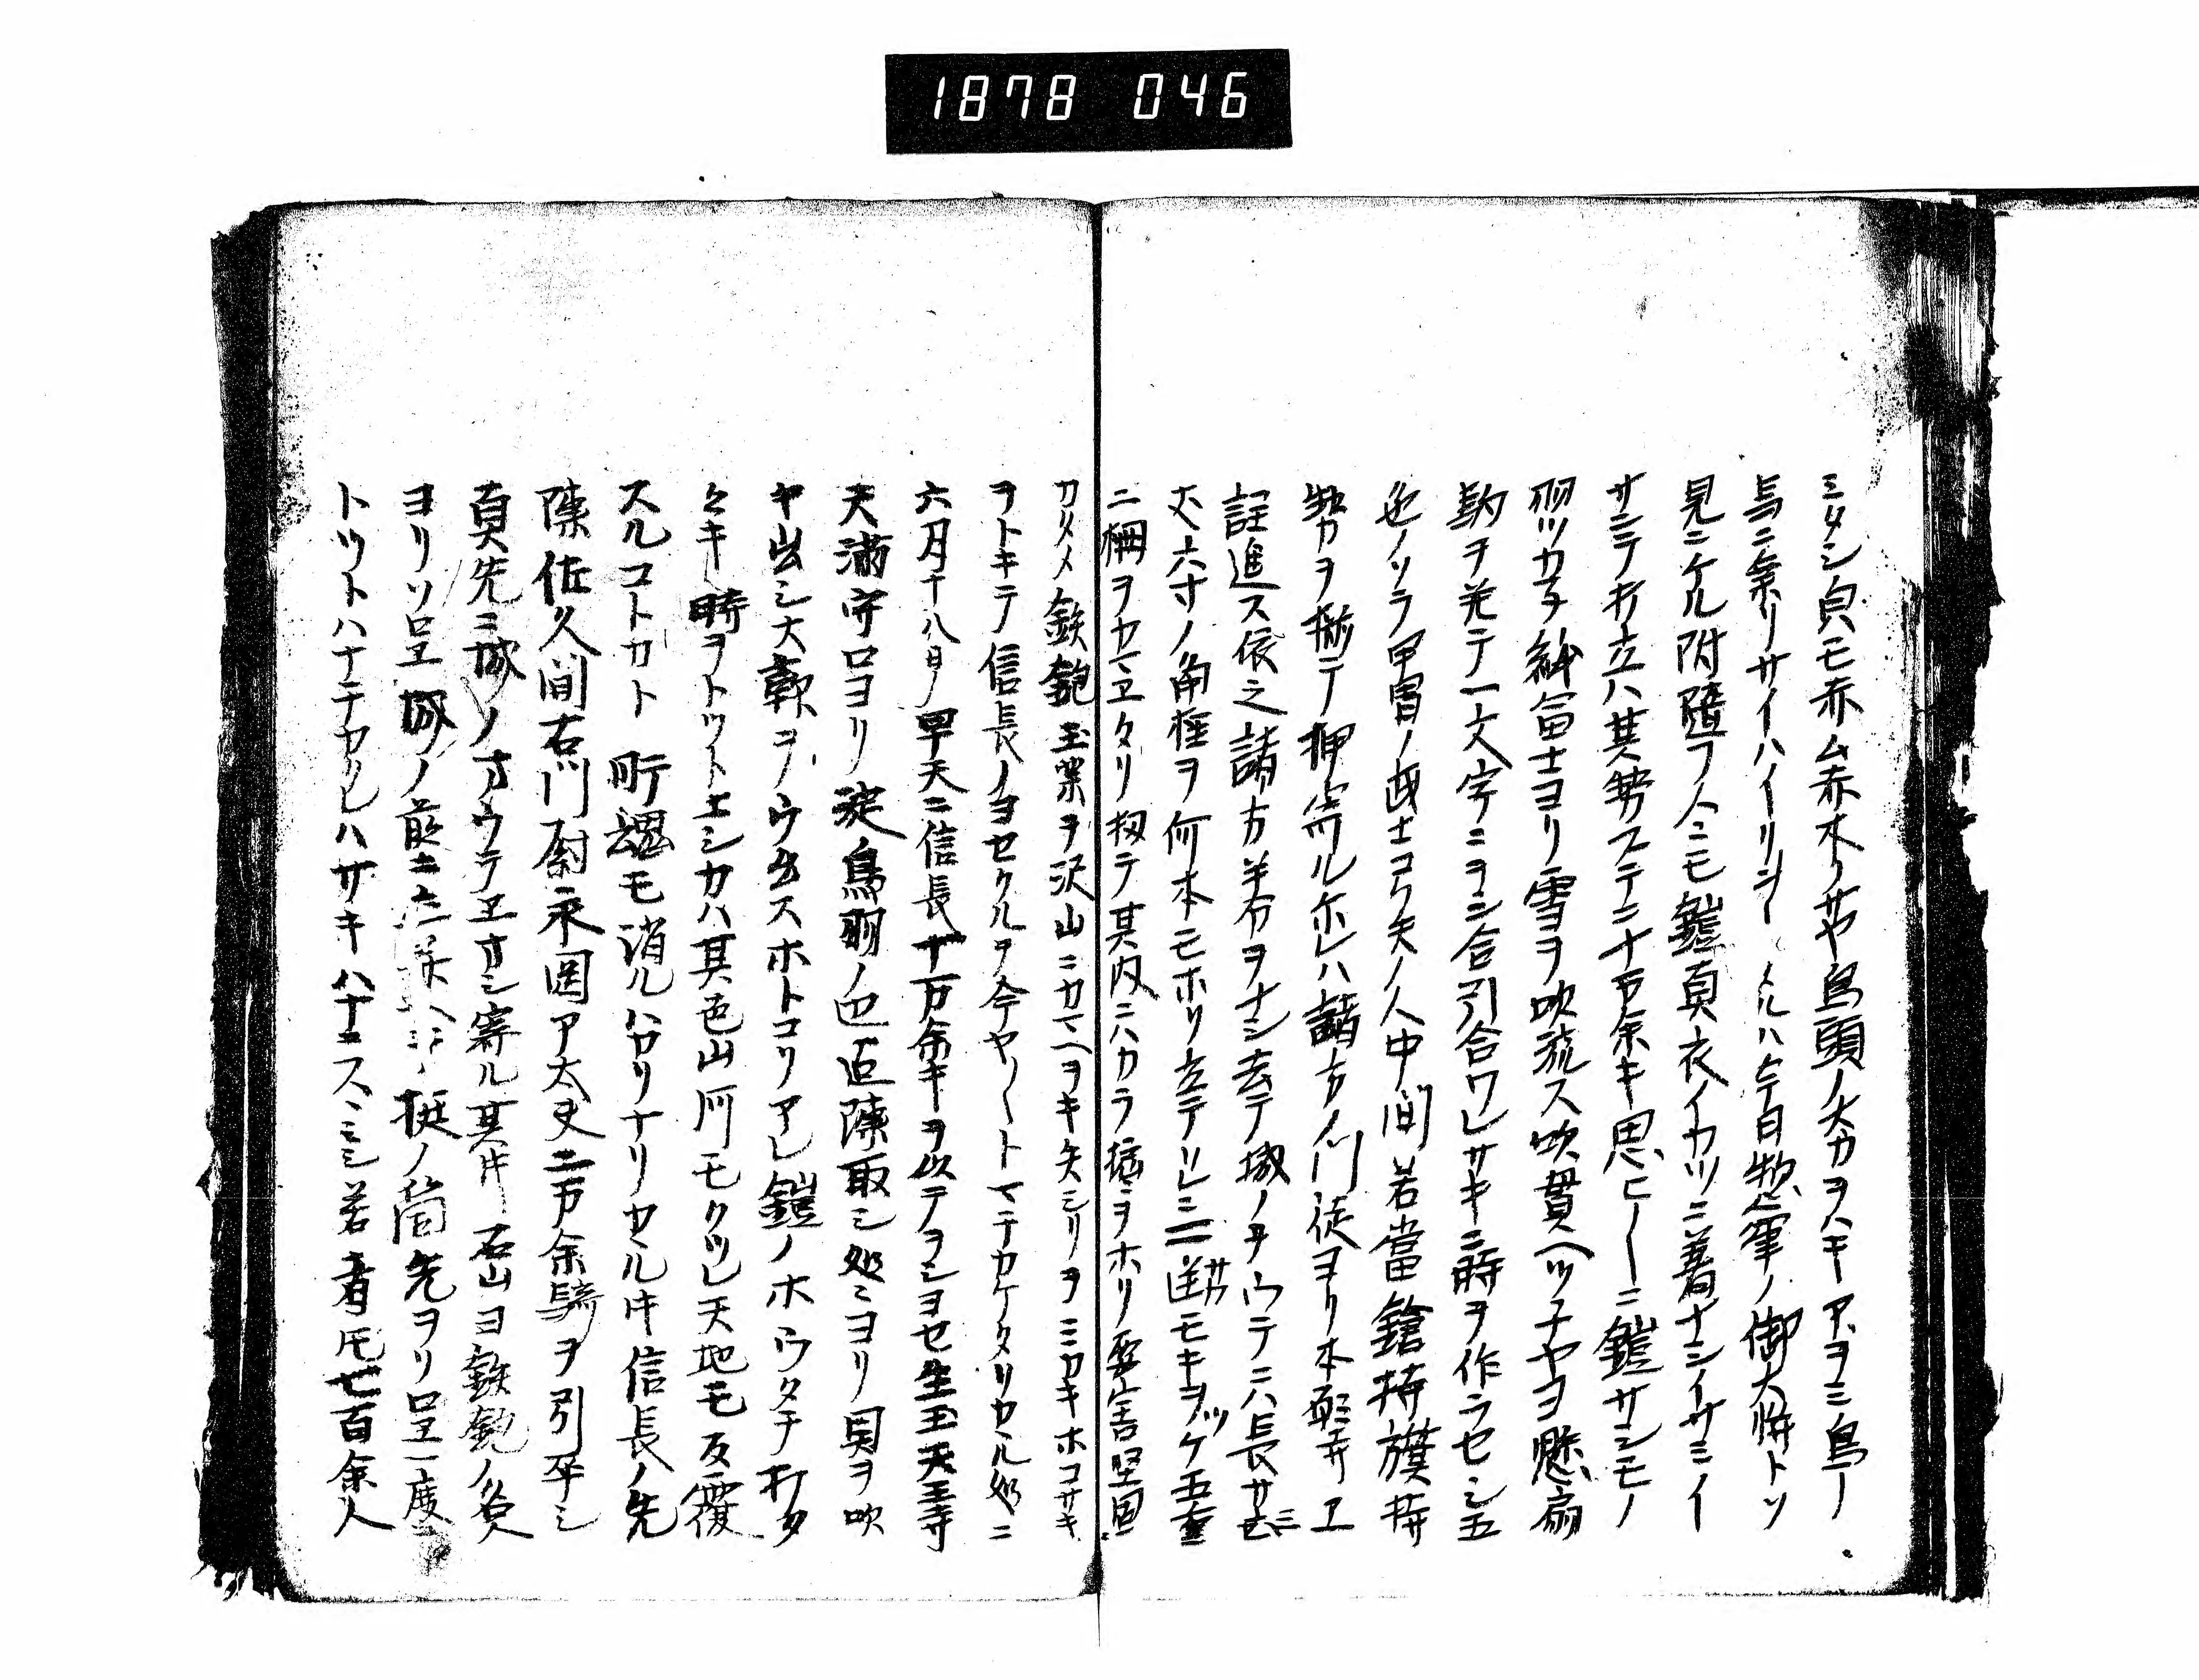 1878 046
ミタシ貞モ赤ム赤木ノサヤ鳥頭ノ大カヲハキアヲミ鳥ー
与ニ乗リサイハイリ ルハ今日惣軍ノ御大将トソ
見ニケル附随フ人ニモ鎧直衣イカツニ著ナシイサミイ
サミテ打立ハ其勢ステニ十万余キ思ヒ〳〵ニ鎧サシモノ
羽ツカヲ 富士ヨリ雪ヲ吹流ス吹貫ヘツナヤヨ懸扇
駒ヲ并テ一文字ニヲシ合引合ワレサキニ時ヲ作ラセシ五
色ノソラ甲冑ノ武士コク矢ノ人中間若當鎗持旗持
勢カヲ揃テ押寄ルホレハ諸方ノ門徒ヨリ本願寺エ
註進ス依之諸方手分ヲナシ去テ城ノヲウテニハ長サ三
丈六寸ノ角柱ヲ何本モホリ立テソレニ モキヲツケ五重
ニ柵ヲカマエタリ扨テ其内ニハカラ堀ヲホリ要害堅固
カタメ鉄炮玉薬ヲ沢山ニカマヘヲキ矢シリヲミカキホコサキ
ヲトキテ信長ノヨセクルヲ今ヤ〳〵トマチカケタリカヽル処ニ
六月十八日ノ早天ニ信長十万余キヲ以テヲシヨセ生玉天王寺
天満守口ヨリ淀鳥羽ノ辺迄陳取シ処ミヨリ貝ヲ吹
ヤ出シ大 ヲウ出スホトコリアレ鎧ノホウタチ打タ
タキ時ヲトツトエシカハ其色山河モクツレ天地モ反覆
スルコトカト 所魂モ消ルハカリナリカヽル片信長ノ先
陳佐久間右川尉永岡ア太丈二万余騎ヲ引卒シ
真先ニ城ノオウテエオシ寄ル其片 石山ヨ鉄炮ノ名人
ヨリソロエ城ノ前ニ 挺ノ筒先ヲソロエ一度
トツトハナチカクレハサキハナニスヽミシ若者モ七百余人